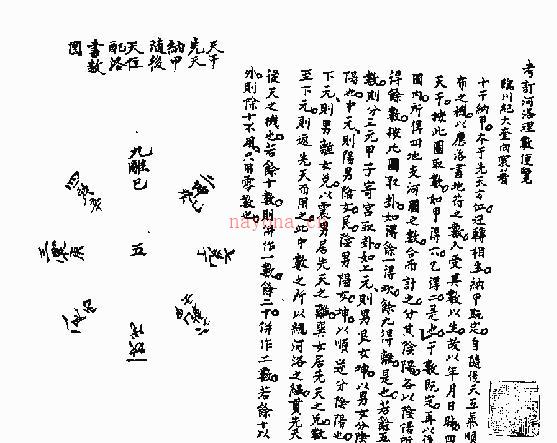 考訂河洛理數便覽
臨川紀大奎向宸著
十干納甲本于先天方位運轉相交納甲既定自隨後天五氣順
布之機以應洛書地符之數人受其數以生故以年月日時四
天干按此圖取數如甲得六乙得二是也干數既定再以
圖內所得四地支河圖之數合而計之分其陰陽各以陰陽所
得餘數按此圖取卦如得餘一得坎餘九得離是也若餘五
數則分三元甲子寄宮取卦如上元則男艮女坤以男女分陰
陽也中元則陽男陰女艮陰男陽女坤以順逆分陰陽也
下元則男離女兌以震男居先天之離巽女居先天之兌數
至下元則返先天而用之此中數之所以綱河洛之樞貫先天
從天之機也若餘十數則併作一數餘二十併作二數若餘十以
外則除十不用只用零數也
天干
先天
納甲
隨後
天位
配洛
書數
圖
九離己
四巽辛
三震庚
五